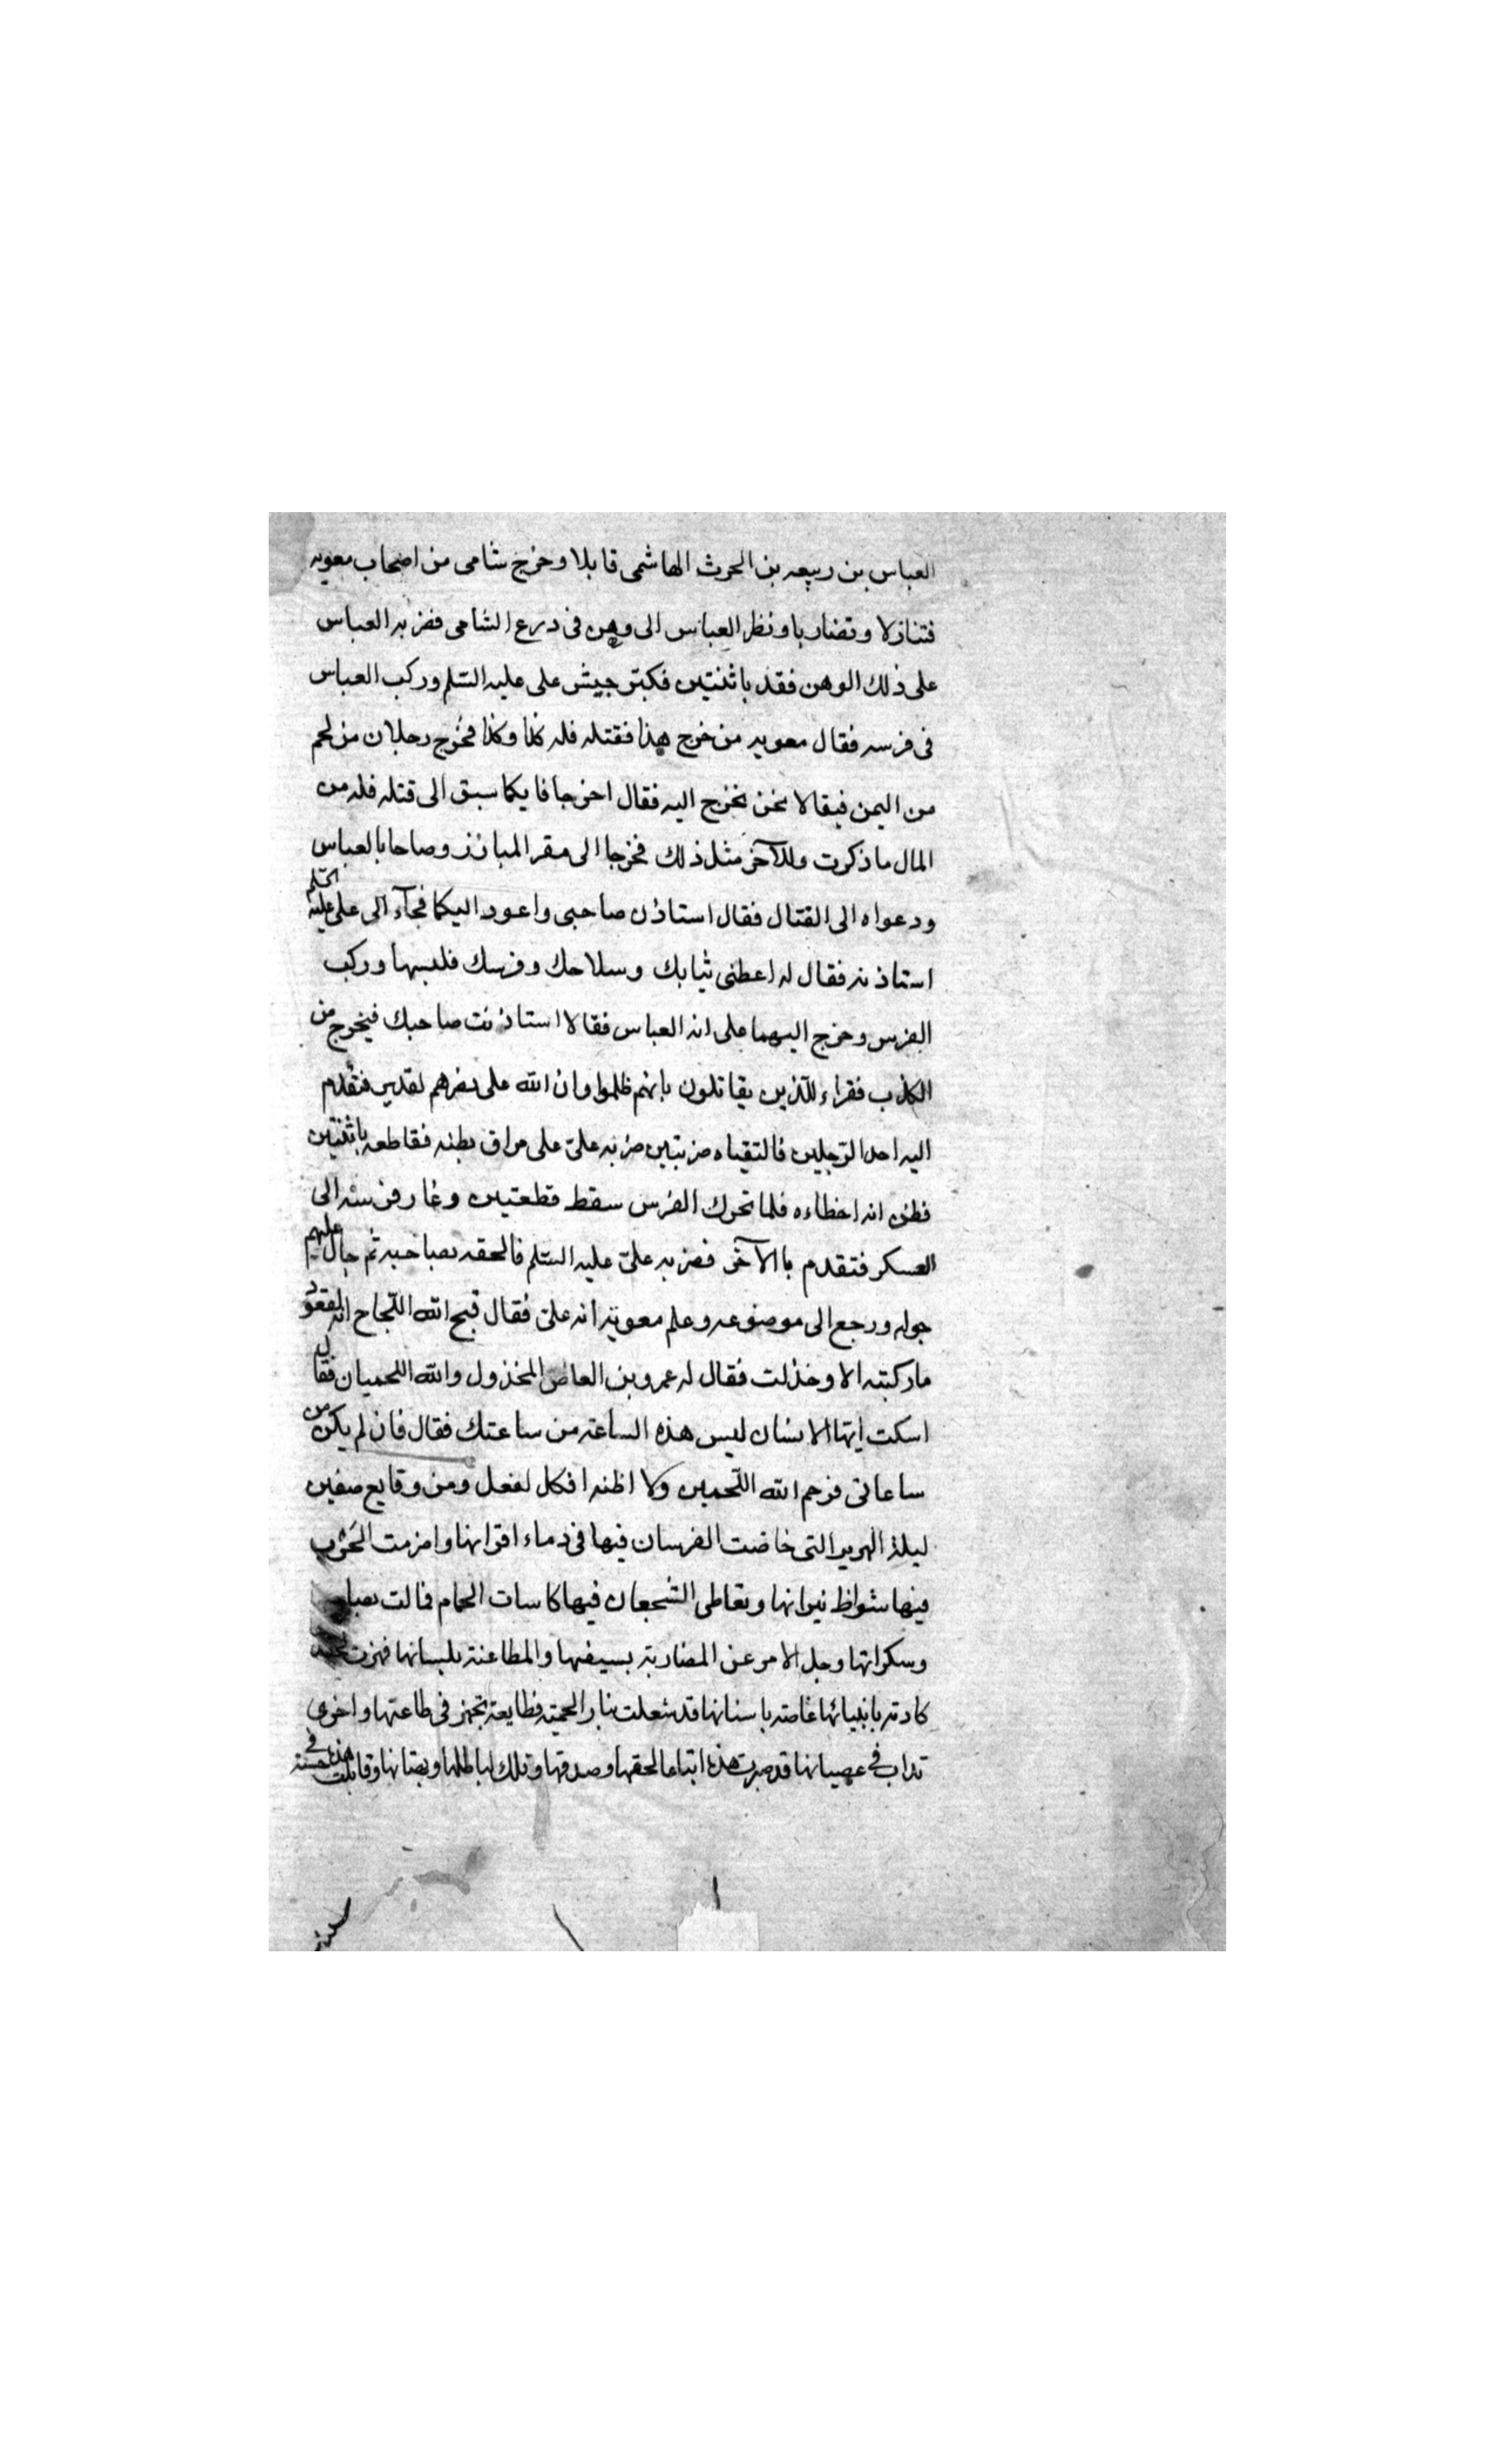 العباس بن ربيعه بن الحرث الهاشمى قابلا وخرج شامى من اصحاب معويه
فتنازلا وتضاربا ونظر العباس الى وهن فى درع الشامى فضربه العباس
على ذلك الوهن فقده باثنتين فكبر جيش على عليه السلم وركب العباس
فى فرسه فقال معويه من خرج هذا فقتله فله كذا وكذا فخرج رجلان من لخم
من اليمن فيقالا نحن نخرج اليه فقال اخرجا فايكما سبق الى قتله فله من
المال ما ذكرت وللآخر مثل ذلك فخرجا الى مقر المبارز وصاحا بالعباس
ودعواه الى القتال فقال استاذن صاحبى واعود اليكما فجآء الى على عليه السلم
استاذنه فقال له اعطنى ثيابك وسلاحك وفرسك فلبسها وركب
الفرس وخرج اليهما على انه العباس فقالا استاذنت صاحبك فيخرج من
الكذب فقراء للذين يقاتلون بانهم ظلموا وان الله على نصرهم لقدير فتقدم
اليه احد الرجلين فالتقياه ضربتين ضربه على على مراق بطنه فقاطعه باثنتين
فظن انه اخطاءه فلما تحرك الفرس سقط قطعتين وغار فرسه الى
العسكر فتقدم باالآخر فضربه على عليه السلم فالحقه بصاحبه ثم جال عليهم
جوله ورجع الى موضوعه وعلم معوية انه على فقال قبح الله اللجاج انه لقعود
ما ركبته الا وخذلت فقال له عمرو بن العاص المخذول والله اللخميان فقال
اسكت ايها الانسان ليس هذه الساعة من ساعتك فقال فان لم يكن من
ساعاتى فرحم الله اللخمين ولا اظنه افكل لفعل ومن وقايع صفين
ليلة الهرير التى خاضت الفرسان فيها فى دماء اقرانها واضرمت الحرب
فيها شواظ نيرانها وتعاطى الشجعان فيها كاسات الحمام فمالت
وسكراتها وجل الامر عن المضاربة بسيفها والمطاعنة بلسانها فهرت
كادته بانيابها غاصه باسنانها قد شعلت بنار الحمية فطايعة تجهز فى طاعتها واخرى
تداب فى عصيانها قد صبرت هذه اتباعا لحقها وصدقها وتلك لباطلها وبهتانها وقاتلت هذه حسنة فى